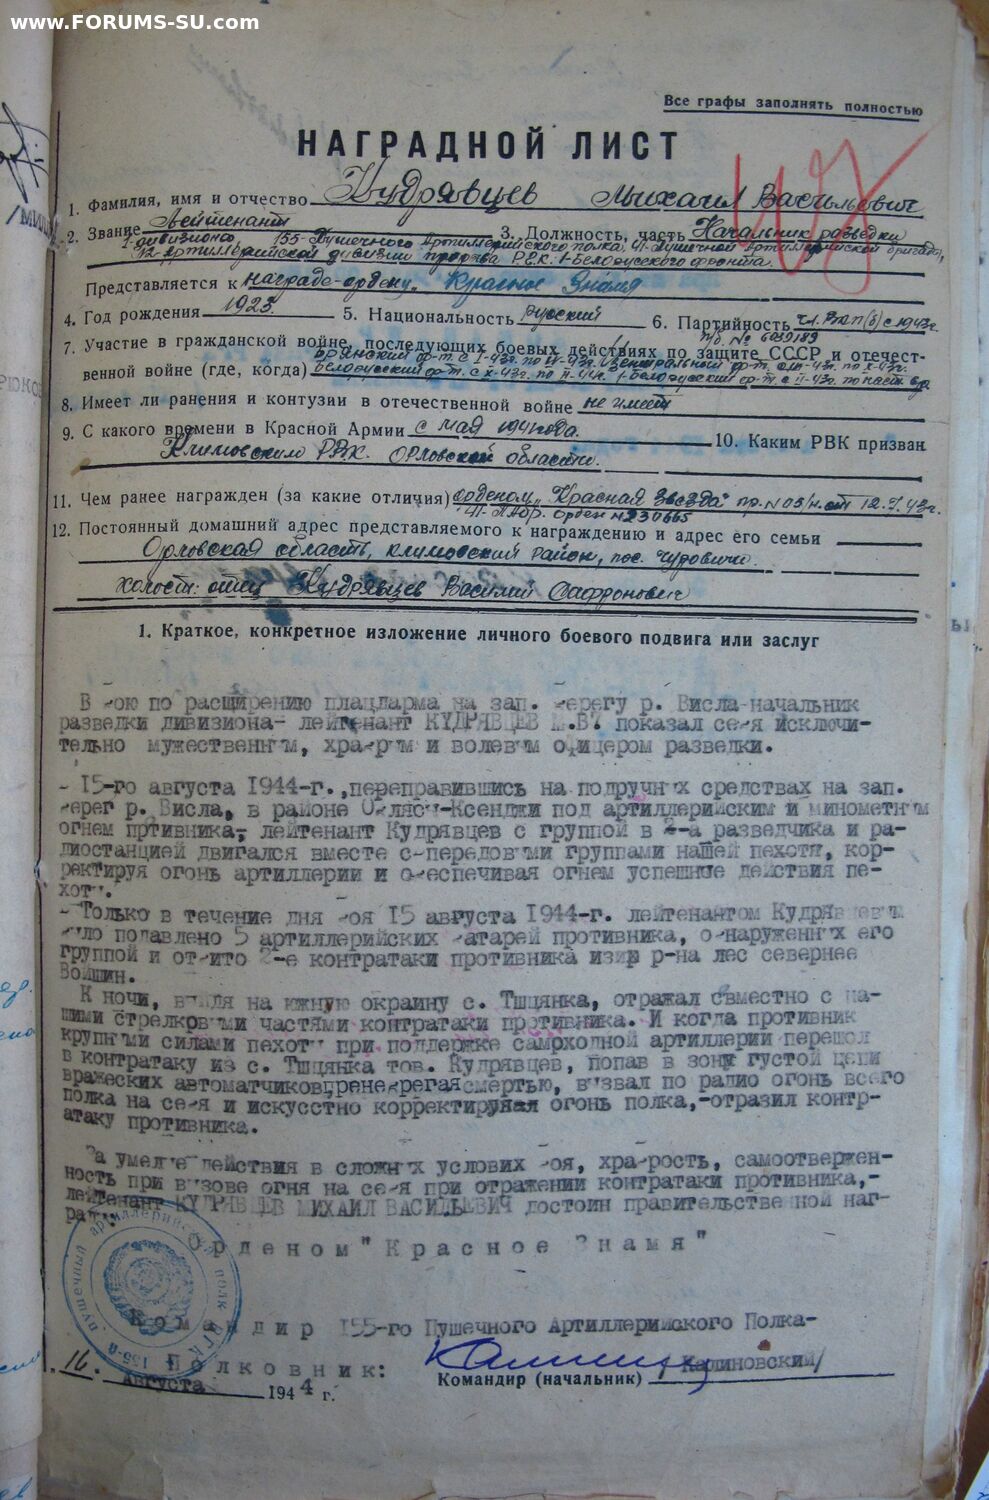 www.FORUMS-SU.com
Все графы заполнять полностью
НАГРАДНОЙ ЛИСТ
1. Фамилия, имя и отчество Кудрявцев Михаил Васильевич
2. Звание Лейтенант 3. Должность, часть Начальник разведки
1-дивизиона, 155-Пушечного Артиллерийского полка, 41-Пушечной Артиллерийской бригады,
Артиллерийской дивизии прорыва РГК. 1-Белорусского фронта.
Представляется к награде-ордену „Красное Знамя
4. Год рождения 1923. 5. Национальность русский 6. Партийность чл. ВКП(б) с 1943г.
п/б. № 6039189
7. Участие в гражданской войне, последующих боевых действиях по защите СССР и отечест-
Брянский ф-т. с I-43г. по IV-43г. Центральный ф-т. по X-43г.
венной войне (где, когда) Белорусский ф-т. с X-43г. по II-44г. 1-Белорусский ф-т. с II-43г. по наст. вр.
8. Имеет ли ранения и контузии в отечественной войне не имеет
9. С какого времени в Красной Армии с мая 1941 года. 10. Каким РВК призван
Климовским РВК. Орловской области.
11. Чем ранее награжден (за какие отличия) орденом „Красная Звезда" пр. N 05/н. от 12.9.43г.
орден N 230665
12. Постоянный домашний адрес представляемого к награждению и адрес его семьи
Орловская область, Климовский район, пос. Чуровичи
холост. отец Кудрявцев Василий Сафронович
1. Краткое, конкретное изложение личного боевого подвига или заслуг
В бою по расширению плацдарма на зап. берегу р. Висла-начальник
разведки дивизиона- лейтенант КУДРЯВЦЕВ М.В. показал себя исключи-
тельно мужественным, храбрым и волевым офицером разведки.
- 15-го августа 1944-г., переправившись на подручных средствах на зап.
берег р. Висла, в районе Оклясы-Ксенджи под артиллерийским и минометным
огнем пртивника, лейтенант Кудрявцев с группой в 2-а разведчика и ра-
диостанцией двигался вместе с-передовыми группами нашей пехоты, кор-
ректируя огонь артиллерии и обеспечивая огнем успешные действия пе-
хоты.
- Только в течение дня боя 15 августа 1944-г. лейтенантом Кудрявцевым
было подавлено 5 артиллерийских батарей противника, обнаруженных его
группой и отбито 2-е контратаки противника из р-на лес севернее
Войшин.
К ночи, выйдя на южную окраину с. Тшцянка, отражал свместно с на-
шими стрелковыми частями контратаки противника. И когда противник
крупными силами пехоты при поддержке самрходной артиллерии перешел
в контратаку из с. Тшцянка тов. Кудрявцев, попав в зону густой цепи
вражеских автоматчиков, пренебрегая смертью, вызвал по радио огонь всего
полка на себя и искусстно корректируя огонь полка,-отразил контр-
атаку противника.
За умелые действия в сложных услових боя, храбрость, самоотвержен-
ность при вызове огня на себя при отражении контратаки противника,-
лейтенант КУДРЯВЦЕВ МИХАИЛ ВАСИЛЬЕВИЧ достоин правительственной наг-
рады
Орденом "Красное Знамя"
155-й пушечный артиллерийский полк РГК
Командир 155-го Пушечного Артиллерийского Полка-
Полковник: /Калиновский/
Командир (начальник)
16. Августа 1944 г.